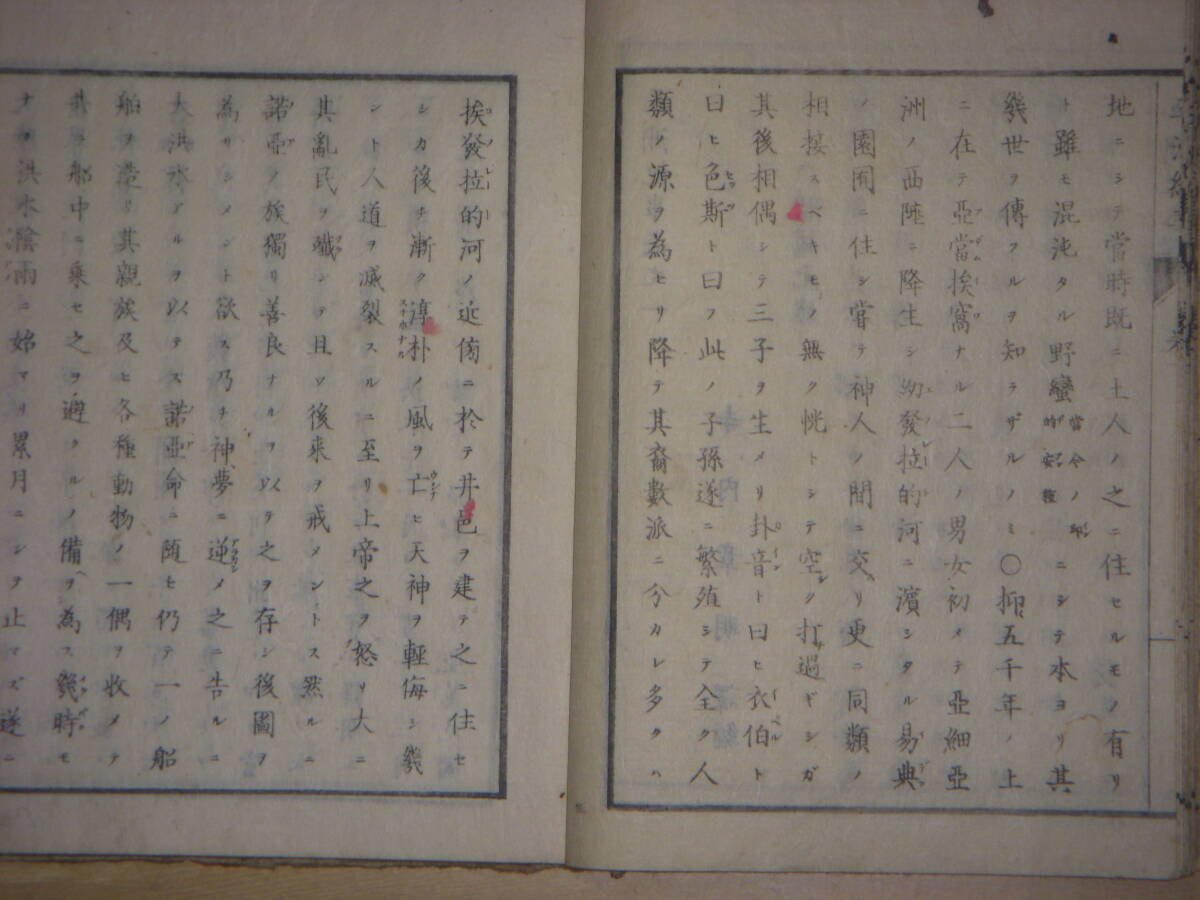 地ニシテ當時既ニ土人ノ之ニ住セルモノ有リ
ト雖モ混沌タル野蠻當今ノ的安種ニシテ本ヨリ其
幾世ヲ傳フルヲ知ラザルノミ〇抑五千年ノ上
ニ在テ亞當挨窩ナル二人ノ男女初メテ亞細亞
洲ノ西陲ニ降生シ幼發拉的河ニ濱シタル易典
ノ園囿ニ住シ嘗テ神人ノ間ニ交リ更ニ同類ノ
相接スベキモノ無ク恍トシテ空シク打過ギシガ
其後相偶シテ三子ヲ生メリ卦音ト曰ヒ衣伯ト
曰ヒ色斯ト曰フ此ノ子孫遂ニ繁殖シテ全ク人
類ノ源ヲ為セリ降テ其裔數派ニ分カレ多クハ
挨發拉的河ノ近傍ニ於テ井邑ヲ建テ之ニ住セ
シカ後チ漸ク淳朴ノ風ヲ亡ヒ天神ヲ輕侮シ幾
ント人道ヲ滅裂スルニ至リ上帝之ヲ怒リ大ニ
其亂民ヲ殲シテ且ツ後来ヲ戒メントス然ルニ
諾亞ノ族獨リ善良ナルヲ以テ之ヲ存シ後圖ヲ
為サシメント欲ス乃チ神夢ニ逆メ之ニ告ルニ
大洪水アルヲ以テス諾亞命ニ随ヒ仍テ一ノ船
舶ヲ造リ其親族及ヒ各種動物ノ一偶ヲ收メテ
共ニ船中ニ乘セ之ヲ避クルノ備ヲ為ス幾時モ
ナク洪水陰雨ニ始マリ累月ニシテ止マズ遂ニ